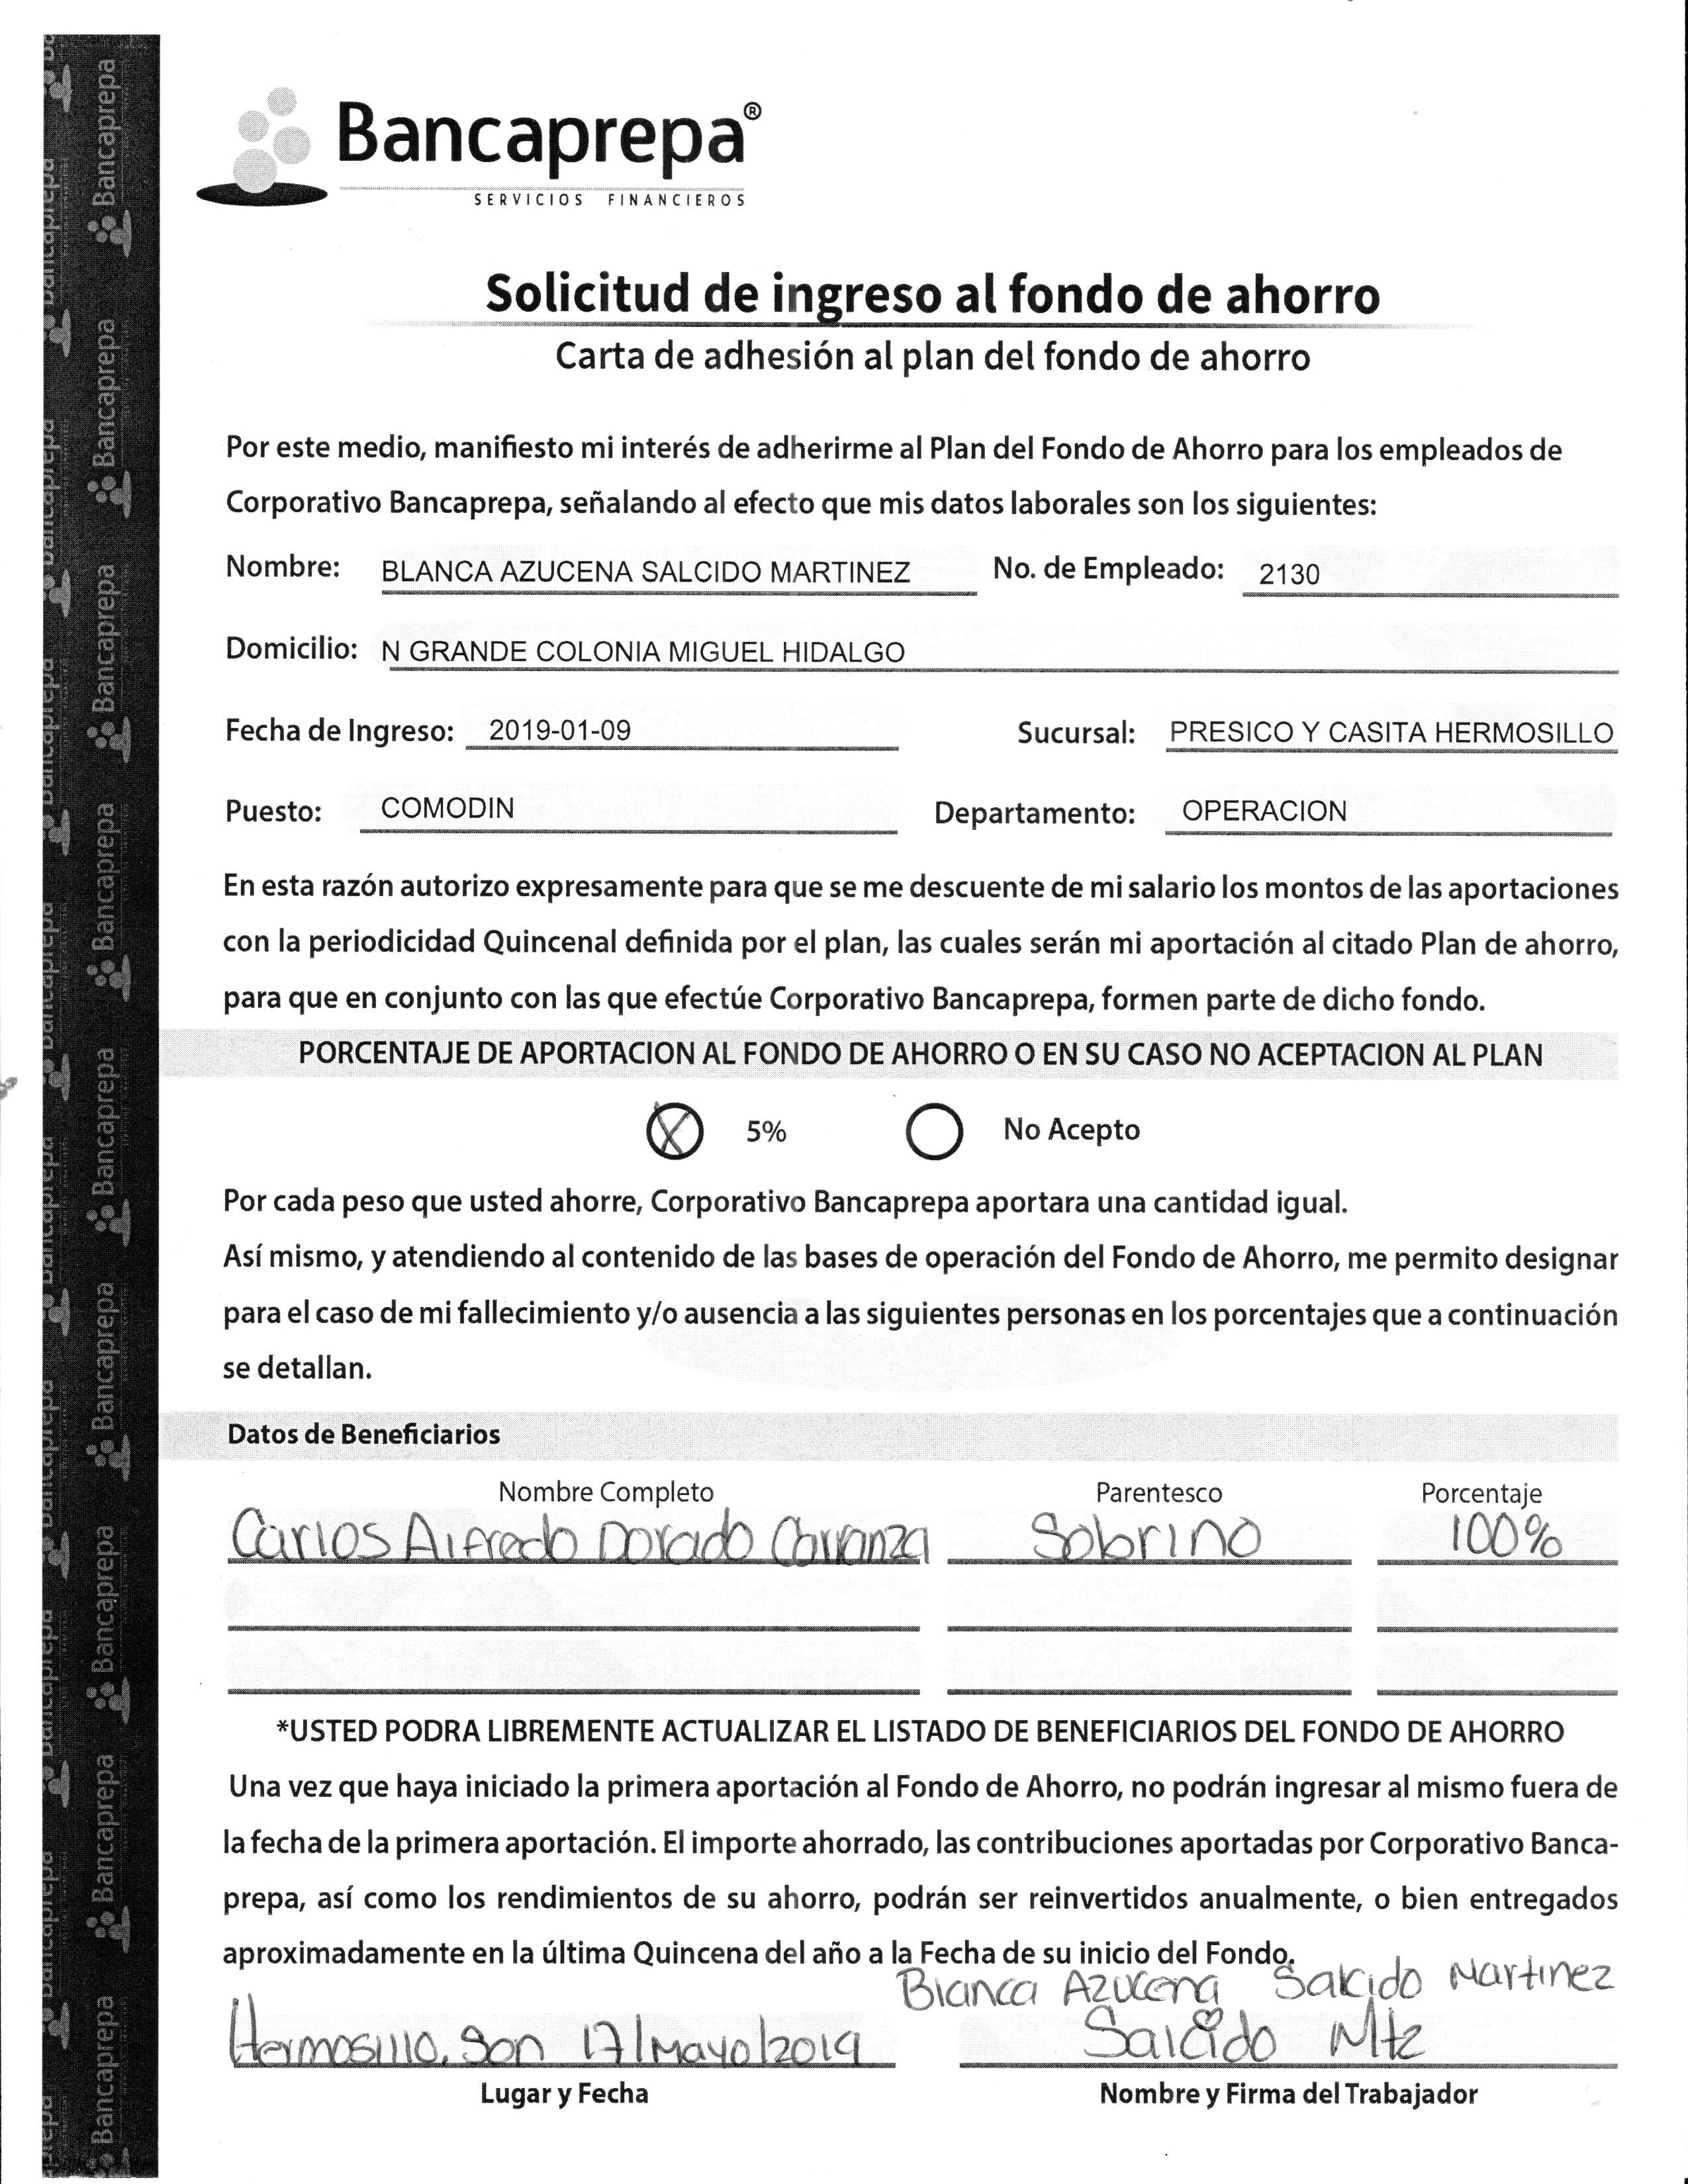 Bancaprepa®
SERVICIOS FINANCIEROS
Solicitud de ingreso al fondo de ahorro
Carta de adhesión al plan del fondo de ahorro
Por este medio, manifiesto mi interés de adherirme al Plan del Fondo de Ahorro para los empleados de
Corporativo Bancaprepa, señalando al efecto que mis datos laborales son los siguientes:
Nombre: BLANCA AZUCENA SALCIDO MARTINEZ No. de Empleado: 2130
Domicilio: N GRANDE COLONIA MIGUEL HIDALGO
Fecha de Ingreso: 2019-01-09 Sucursal: PRESICO Y CASITA HERMOSILLO
Puesto: COMODIN Departamento: OPERACION
En esta razón autorizo expresamente para que se me descuente de mi salario los montos de las aportaciones
con la periodicidad Quincenal definida por el plan, las cuales serán mi aportación al citado Plan de ahorro,
para que en conjunto con las que efectúe Corporativo Bancaprepa, formen parte de dicho fondo.
PORCENTAJE DE APORTACION AL FONDO DE AHORRO O EN SU CASO NO ACEPTACION AL PLAN
5% No Acepto
Por cada peso que usted ahorre, Corporativo Bancaprepa aportara una cantidad igual.
Así mismo, y atendiendo al contenido de las bases de operación del Fondo de Ahorro, me permito designar
para el caso de mi fallecimiento y/o ausencia a las siguientes personas en los porcentajes que a continuación
se detallan.
Datos de Beneficiarios
Nombre Completo Parentesco Porcentaje
Carlos Alfredo Dorado Carranza Sobrino 100%
*USTED PODRA LIBREMENTE ACTUALIZAR EL LISTADO DE BENEFICIARIOS DEL FONDO DE AHORRO
Una vez que haya iniciado la primera aportación al Fondo de Ahorro, no podrán ingresar al mismo fuera de
la fecha de la primera aportación. El importe ahorrado, las contribuciones aportadas por Corporativo Banca-
prepa, así como los rendimientos de su ahorro, podrán ser reinvertidos anualmente, o bien entregados
aproximadamente en la última Quincena del año a la Fecha de su inicio del Fondo.
Blanca Azucena Salcido Martinez
Hermosillo, Son 17/Mayo/2019 Salcido Mtz
Lugar y Fecha Nombre y Firma del Trabajador